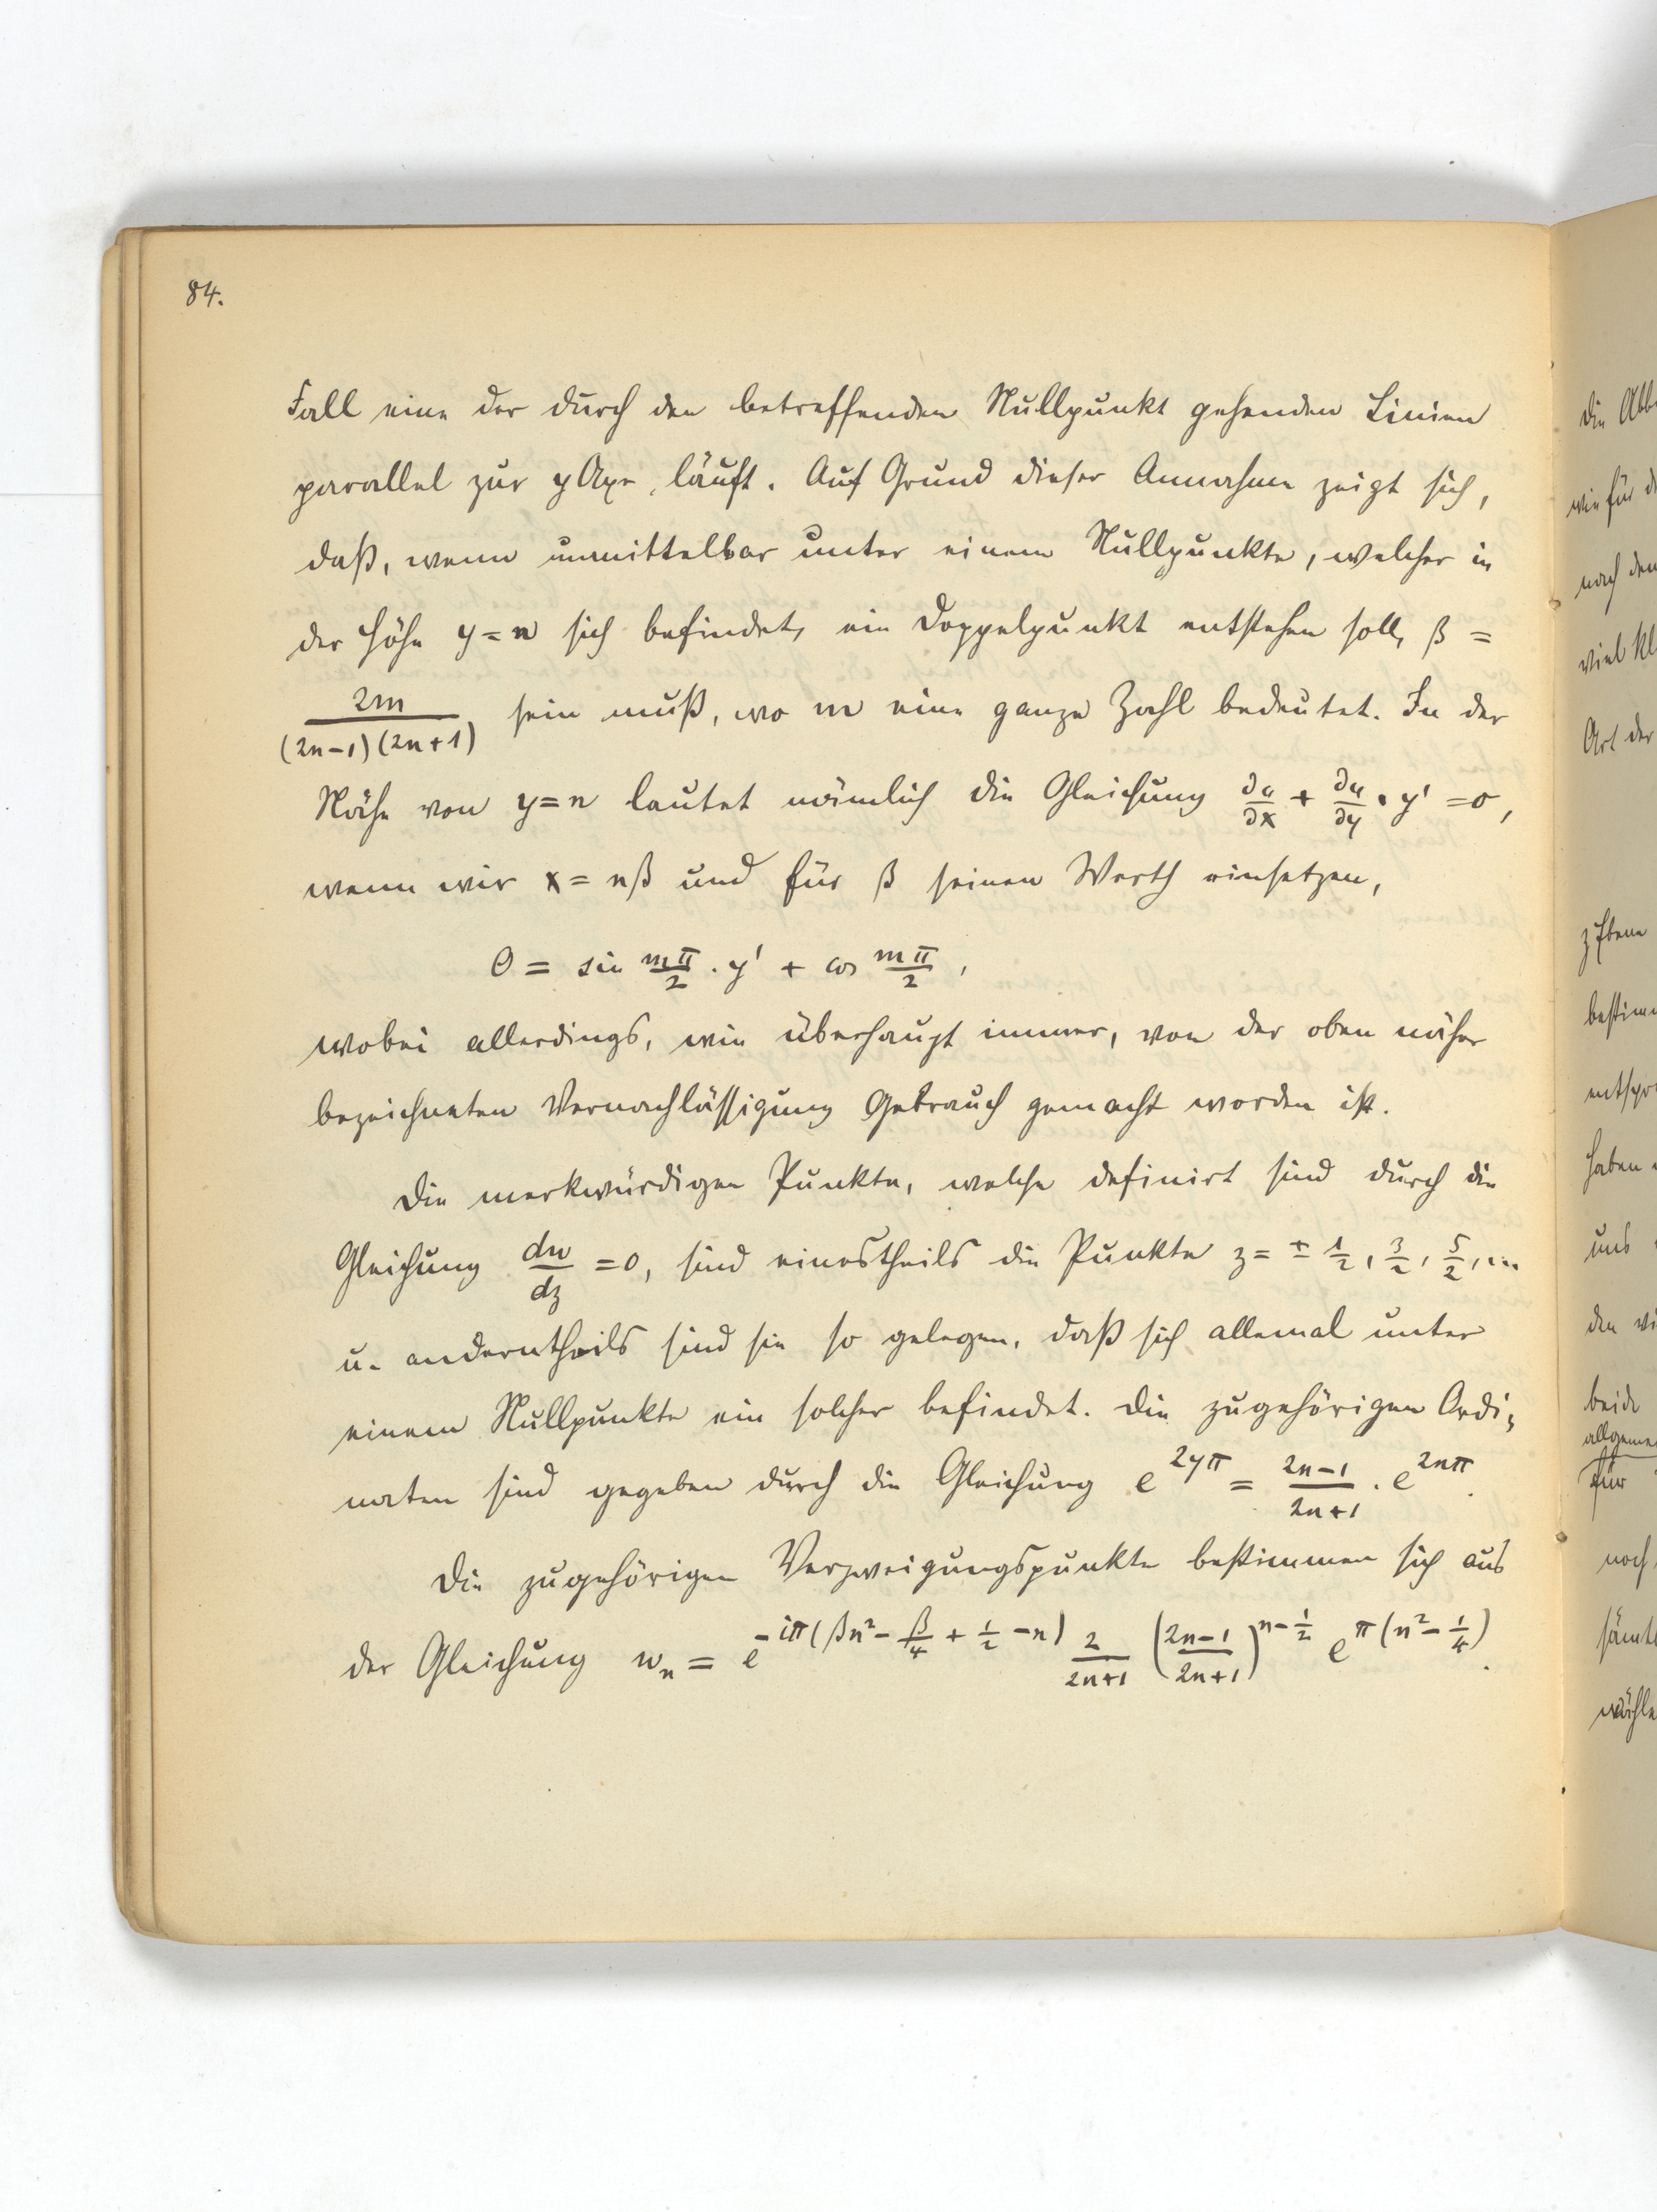 84.
Fall eine der durch den betreffenden Nullpunkt gehenden Linien
parallel zur y Axe läuft. Auf Grund dieser Annahme zeigt sich,
daß, wenn unmittelbar unter einem Nullpunkte, welcher in
der Höhe y = n sich befindet, ein Doppelpunkt entstehen soll, β =
2m/((2n-1)(2n+1)) sein muß, wo m eine ganze Zahl bedeutet. In der
Nähe von y = n lautet nämlich die Gleichung ∂u/∂x + ∂u/∂y · y' = 0,
wenn wir x = nβ und für β seinen Werth einsetzen,
0 = sin mπ/2 · y' + cos mπ/2,
wobei allerdings, wie überhaupt immer, von der oben näher
bezeichneten Vernachlässigung Gebrauch gemacht worden ist.
Die merkwürdigen Punkte, welche definirt sind durch die
Gleichung dw/dz = 0, sind einestheils die Punkte z = ± 1/2, 3/2, 5/2, ...
u. anderntheils sind sie so gelegen, daß sich allemal unter
einem Nullpunkte ein solcher befindet. Die zugehörigen Ordi-
naten sind gegeben durch die Gleichung e^{2yπ} = (2n-1)/(2n+1) · e^{2nπ}.
Die zugehörigen Verzweigungspunkte bestimmen sich aus
der Gleichung w_n = e^{-iπ(βn² - β/4 + 1/2 - n)} 2/(2n+1) ((2n-1)/(2n+1))^{n-1/2} e^{π(n² - 1/4)}.
die
wie für
nach den
viel
Art der
z Ebene
haben
uns
den
beide
für
noch